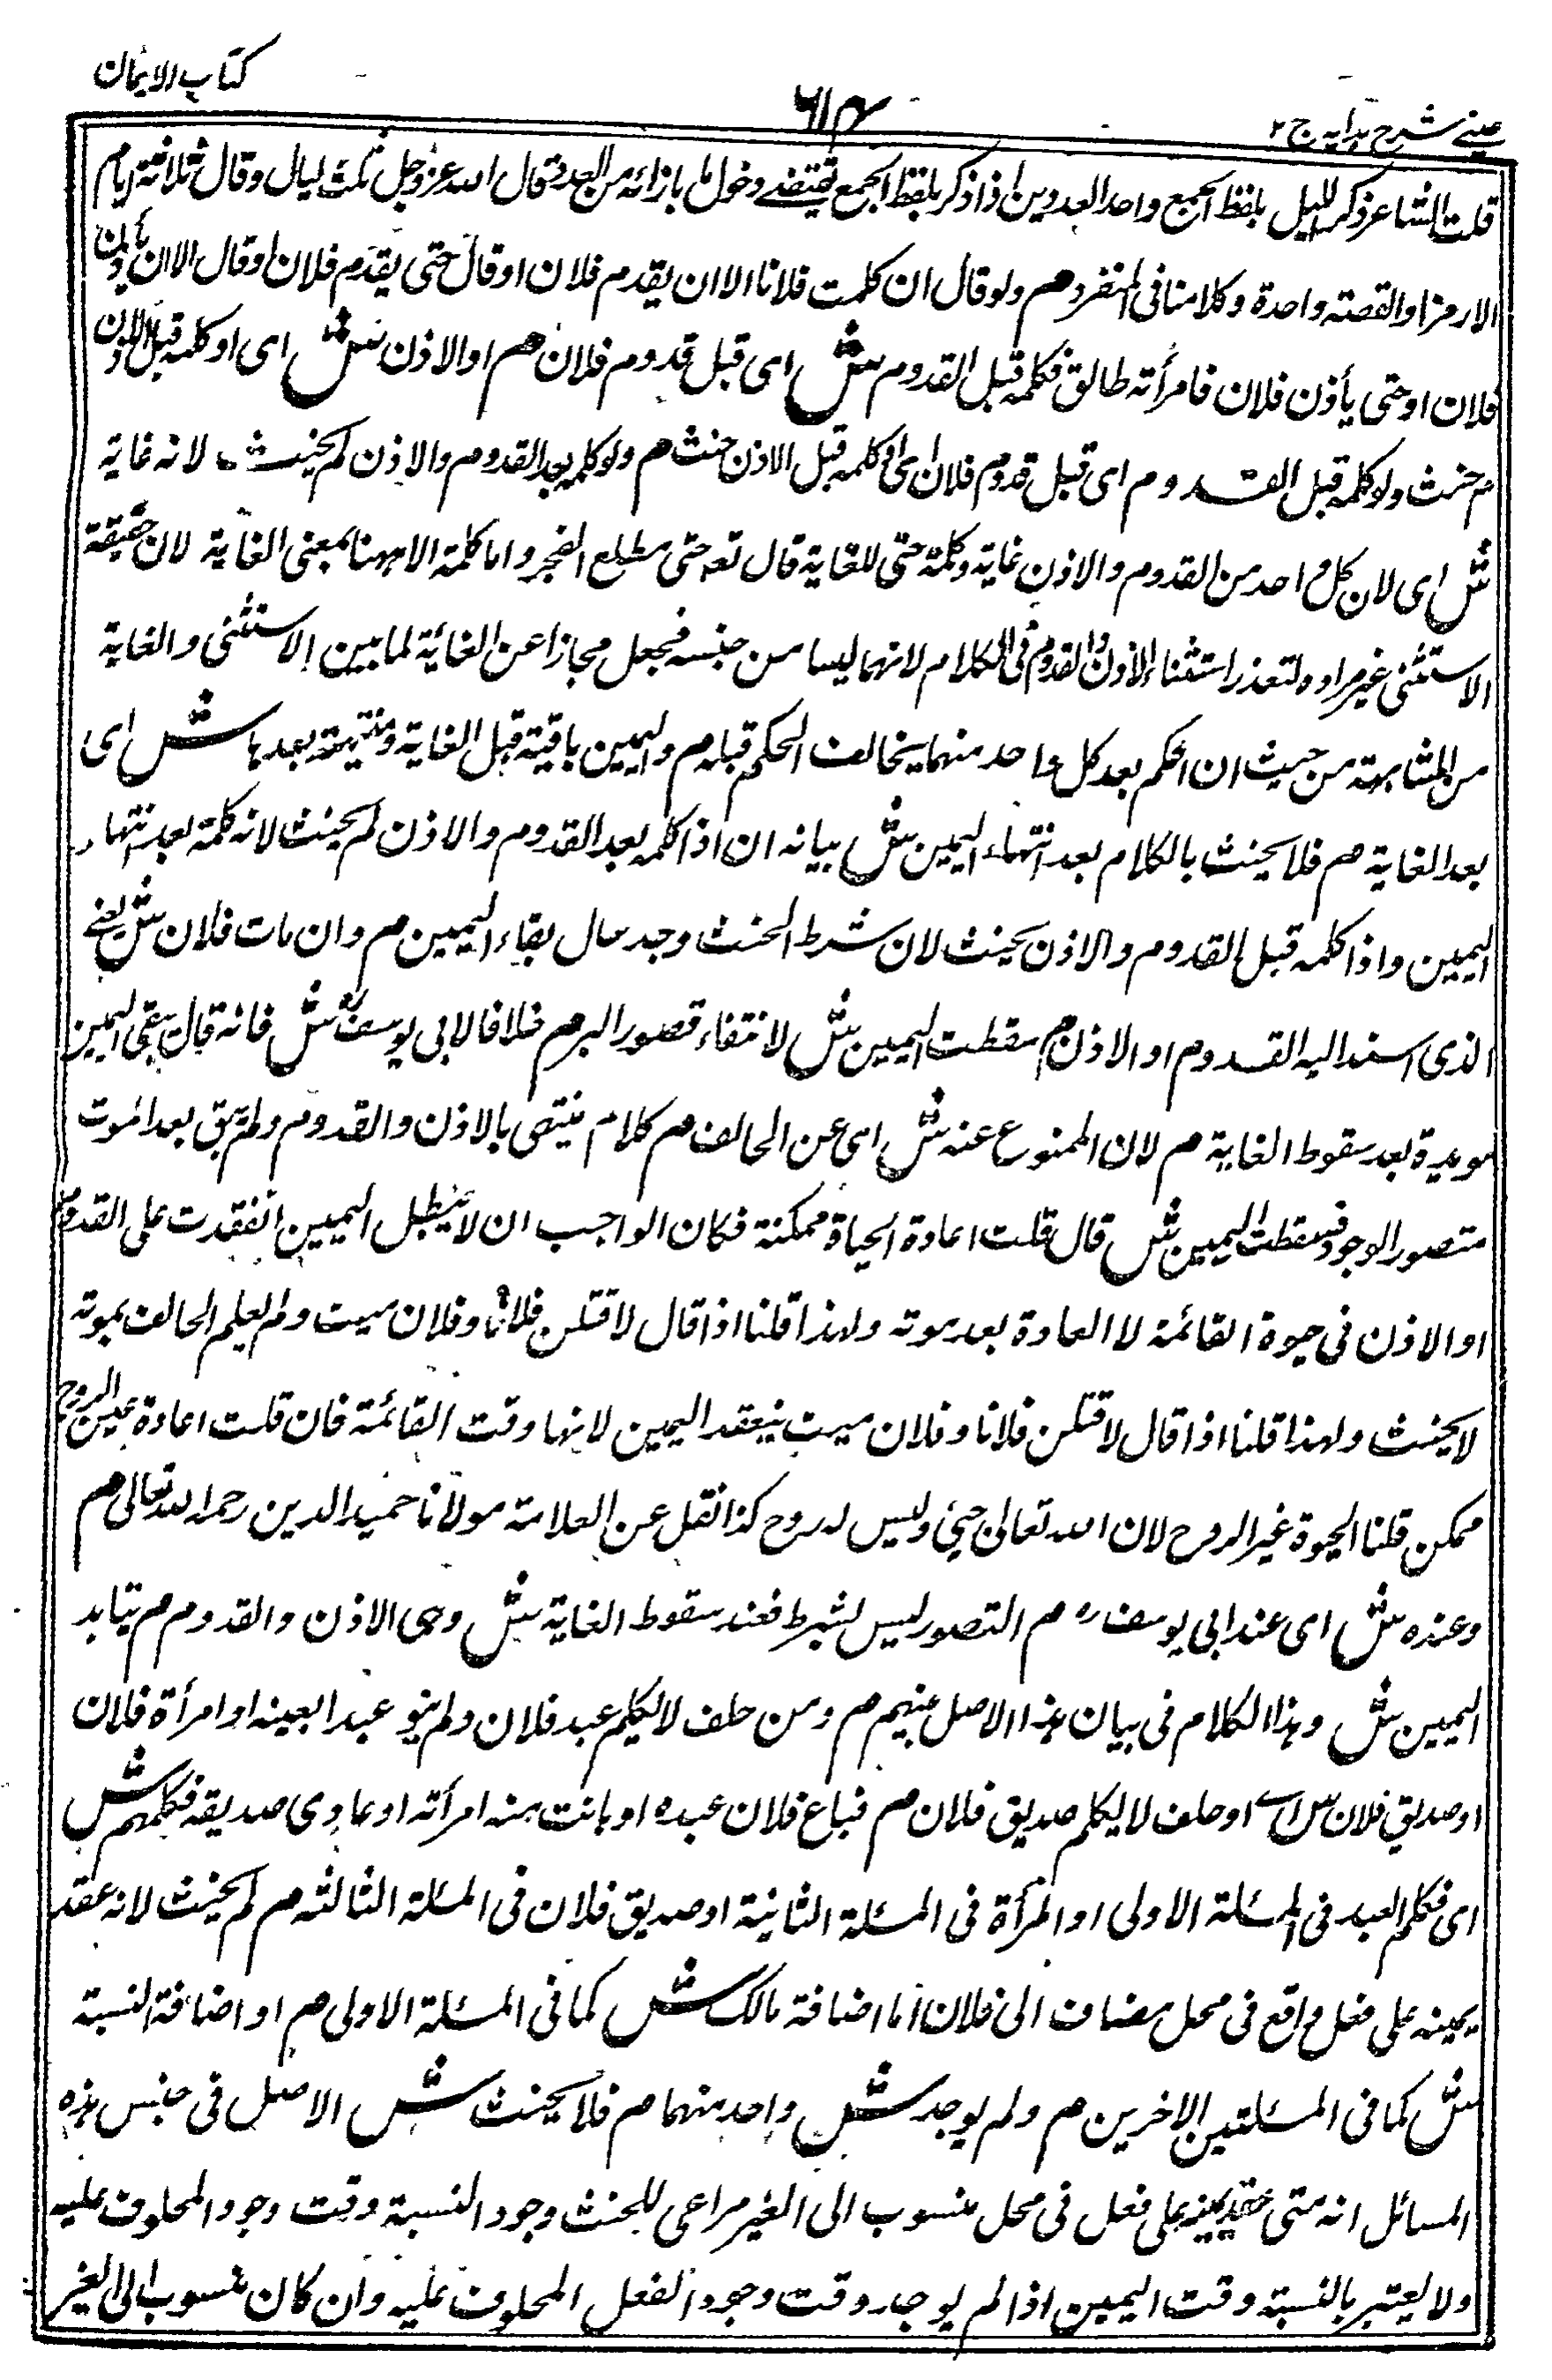 كتاب الايمان
٦١٣
عيني شرح هدايه ج ٢
قلت الشاعر ذكر الليل بلفظ الجمع واحد العددين اذا ذكر بلفظ الجمع يقتضي دخول ما بازائه من العدد قال الله عز وجل ثلث ليال وقال ثلاثة ايام
الا رمزا والقصة واحدة وكلامنا في المنفرد م ولو قال ان كلمت فلانا الا ان يقدم فلان او قال حتى يقدم فلان او قال الا ان يأذن
فلان او حتى يأذن فلان فامرأته طالق فكلمه قبل القدوم ش اى قبل قدوم فلان م او الاذن ش اى او كلمه قبل الاذن
م حنث ولو كلمه قبل القدوم م اى قبل قدوم فلان اى او كلمه قبل الاذن حنث م ولو كلمه بعد القدوم والاذن لم يحنث لانه غاية
ش اى لان كل واحد من القدوم والاذن غاية وكلمة حتى للغاية قال تعه حتى مطلع الفجر واما كلمة الا ههنا بمعنى الغاية لان حقيقة
الاستثنى غير مراده لتعذر استثناء الاذن والقدوم فى الكلام لانهما ليسا من جنسه فجعل مجازا عن الغائية لما بين الاستثنى والغاية
من المشابهة من حيث ان الحكم بعد كل واحد منهما يخالف الحكم قبله م واليمين باقية قبل الغاية ومنتهية بعدها ش اى
بعد الغاية م فلا يحنث بالكلام بعد انتهاء اليمين ش بيانه ان اذا كلمه بعد القدوم والاذن لم يحنث لانه كلمه بعد انتهاء
اليمين واذا كلمه قبل القدوم والاذن يحنث لان شرط الحنث وجد حال بقاء اليمين م وان مات فلان ش يعنے
الذى اسند اليه القدوم او الاذن م سقطت اليمين ش لانتفاء قصور البر م خلافا لابى يوسف ره ش فانه قال يبقى اليمين
موبدة بعد سقوط الغاية م لان الممنوع عنه ش اى عن الحالف م كلام ينتهى بالاذن والقدوم ولم يبق بعد الموت
متصور الوجود فسقطت اليمين ش قال قلت اعادة الحياة ممكنة فكان الواجب ان لا يبطل اليمين انفقدت على القدوم
او الاذن فى حيوة القائمة لا العادة بعد موته ولهذا قلنا اذا قال لاقتلن فلانا وفلان ميت ولم يعلم الحالف بموته
لا يحنث ولهذا قلنا اذا قال لاقتلن فلانا وفلان ميت ينعقد اليمين لانها وقت القائمة فان قلت اعادة عين الروح
ممكن قلنا الحيوة غير الروح لان الله تعالى حيي وليس له روح كذا نقل عن العلامة مولانا حميد الدين رحمه الله تعالى م
وعنده ش اى عند ابى يوسف ره م التصور ليس بشرط فعند سقوط الغاية ش وهى الاذن والقدوم م يتابد
اليمين ش وهذا الكلام فى بيان هذا الاصل بينهم م ومن حلف لا يكلم عبد فلان ولم ينو عبدا بعينه او امرأة فلان
او صديق فلان ش اے او حلف لا يكلم صديق فلان م فباع فلان عبده او بانت منه امرأته او عادى صديقه فكلمهم ش
اى فكلم العبد فى المسئلة الاولى او المرأة فى المسئلة الثانية او صديق فلان فى المسئلة الثالثه م لم يحنث لانه عقد
يمينه على فعل واقع فى محل مضاف الى فلان اما اضافة مالك ش كما فى المسئلة الاولى م او اضافة النسبة
ش كما فى المسئلتين الاخرين م ولم يوجد ش واحد منهما م فلا يحنث ش الاصل فى جنس هذه
المسائل انه متى عقد يمينه على فعل فى محل منسوب الى الغير مراعى للحنث وجود النسبة وقت وجود المحلوف عليه
ولا يعتبر بالنسبة وقت اليمين اذا لم يوجد وقت وجود الفعل المحلوف عليه وان كان منسوب الى الغير